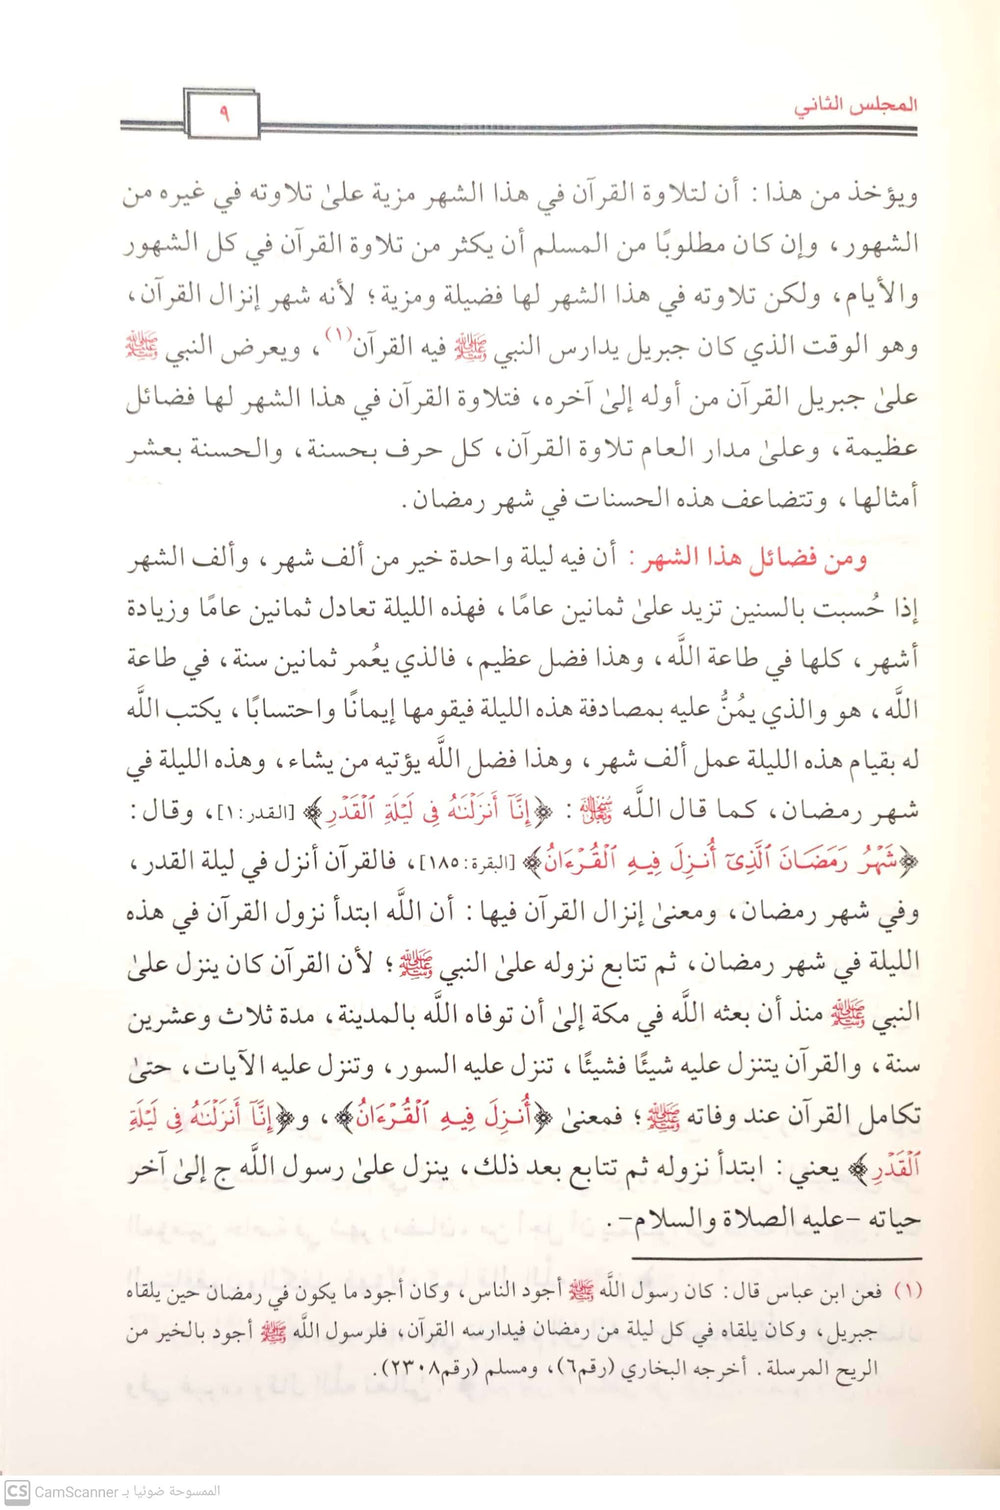 المجلس الثاني
٩
ويؤخذ من هذا: أن لتلاوة القرآن في هذا الشهر مزية علىٰ تلاوته في غيره من
الشهور، وإن كان مطلوبًا من المسلم أن يكثر من تلاوة القرآن في كل الشهور
والأيام، ولكن تلاوته في هذا الشهر لها فضيلة ومزية؛ لأنه شهر إنزال القرآن،
وهو الوقت الذي كان جبريل يدارس النبي ﷺ فيه القرآن(١)، ويعرض النبي ﷺ
علىٰ جبريل القرآن من أوله إلىٰ آخره، فتلاوة القرآن في هذا الشهر لها فضائل
عظيمة، وعلىٰ مدار العام تلاوة القرآن، كل حرف بحسنة، والحسنة بعشر
أمثالها، وتتضاعف هذه الحسنات في شهر رمضان.
ومن فضائل هذا الشهر: أن فيه ليلة واحدة خير من ألف شهر، وألف الشهر
إذا حُسبت بالسنين تزيد علىٰ ثمانين عامًا، فهذه الليلة تعادل ثمانين عامًا وزيادة
أشهر، كلها في طاعة اللَّه، وهذا فضل عظيم، فالذي يعُمر ثمانين سنة، في طاعة
اللَّه، هو والذي يمُنُّ عليه بمصادفة هذه الليلة فيقومها إيمانًا واحتسابًا، يكتب اللَّه
له بقيام هذه الليلة عمل ألف شهر، وهذا فضل اللَّه يؤتيه من يشاء، وهذه الليلة في
شهر رمضان، كما قال اللَّه ﷾: ﴿إِنَّآ أَنزَلۡنَٰهُ فِي لَيۡلَةِ ٱلۡقَدۡرِ﴾ [القدر:١]، وقال:
﴿شَهۡرُ رَمَضَانَ ٱلَّذِيٓ أُنزِلَ فِيهِ ٱلۡقُرۡءَانُ﴾ [البقرة:١٨٥]، فالقرآن أنزل في ليلة القدر،
وفي شهر رمضان، ومعنىٰ إنزال القرآن فيها: أن اللَّه ابتدأ نزول القرآن في هذه
الليلة في شهر رمضان، ثم تتابع نزوله علىٰ النبي ﷺ؛ لأن القرآن كان ينزل علىٰ
النبي ﷺ منذ أن بعثه اللَّه في مكة إلىٰ أن توفاه اللَّه بالمدينة، مدة ثلاث وعشرين
سنة، والقرآن يتنزل عليه شيئًا فشيئًا، تنزل عليه السور، وتنزل عليه الآيات، حتىٰ
تكامل القرآن عند وفاته ﷺ؛ فمعنىٰ ﴿أُنزِلَ فِيهِ ٱلۡقُرۡءَانُ﴾، و﴿إِنَّآ أَنزَلۡنَٰهُ فِي لَيۡلَةِ
ٱلۡقَدۡرِ﴾ يعني: ابتدأ نزوله ثم تتابع بعد ذلك، ينزل علىٰ رسول اللَّه ج إلىٰ آخر
حياته -عليه الصلاة والسلام-.
(١) فعن ابن عباس قال: كان رسول اللَّه ﷺ أجود الناس، وكان أجود ما يكون في رمضان حين يلقاه
جبريل، وكان يلقاه في كل ليلة من رمضان فيدارسه القرآن، فلرسول اللَّه ﷺ أجود بالخير من
الريح المرسلة. أخرجه البخاري (رقم٦)، ومسلم (رقم٢٣٠٨).
CS CamScanner الممسوحة ضوئيا بـ